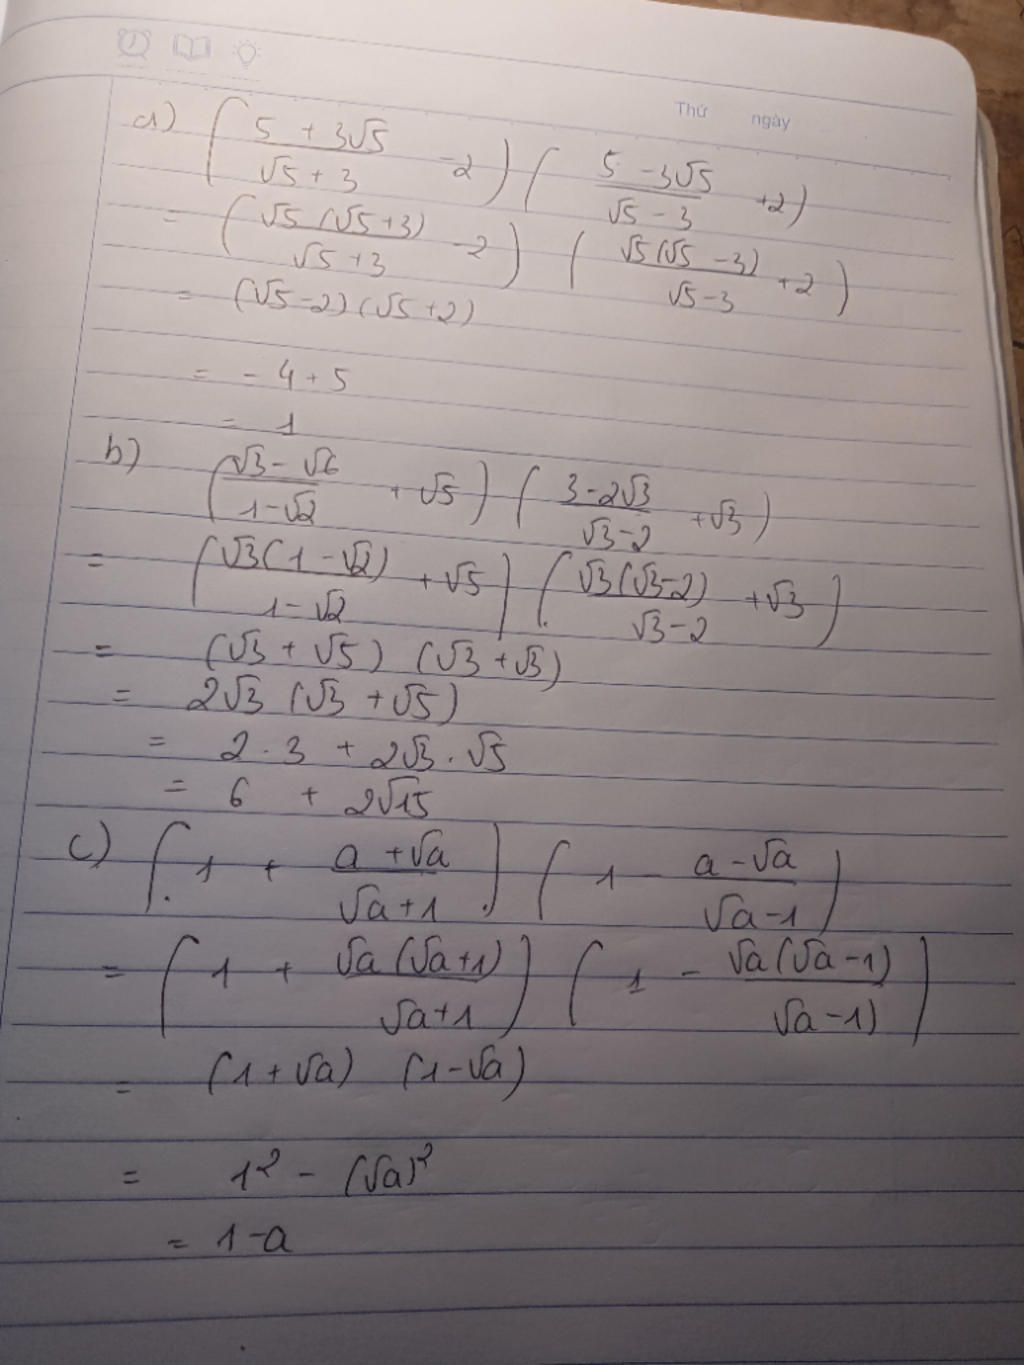 Thứ ngày
a) ( (5 + 3√5)/(√5 + 3) - 2 ) ( (5 - 3√5)/(√5 - 3) + 2 )
= ( (√5 (√5 + 3))/(√5 + 3) - 2 ) ( (√5 (√5 - 3))/(√5 - 3) + 2 )
= (√5 - 2) (√5 + 2)
= - 4 + 5
= 1
b) ( (√3 - √6)/(1 - √2) + √5 ) ( (3 - 2√3)/(√3 - 2) + √3 )
= ( (√3 (1 - √2))/(1 - √2) + √5 ) ( (√3 (√3 - 2))/(√3 - 2) + √3 )
= (√3 + √5) (√3 + √3)
= 2√3 (√3 + √5)
= 2 . 3 + 2√3 . √5
= 6 + 2√15
c) ( 1 + (a + √a)/(√a + 1) ) ( 1 - (a - √a)/(√a - 1) )
= ( 1 + (√a (√a + 1))/(√a + 1) ) ( 1 - (√a (√a - 1))/(√a - 1)) )
= (1 + √a) (1 - √a)
= 1² - (√a)²
= 1 - a